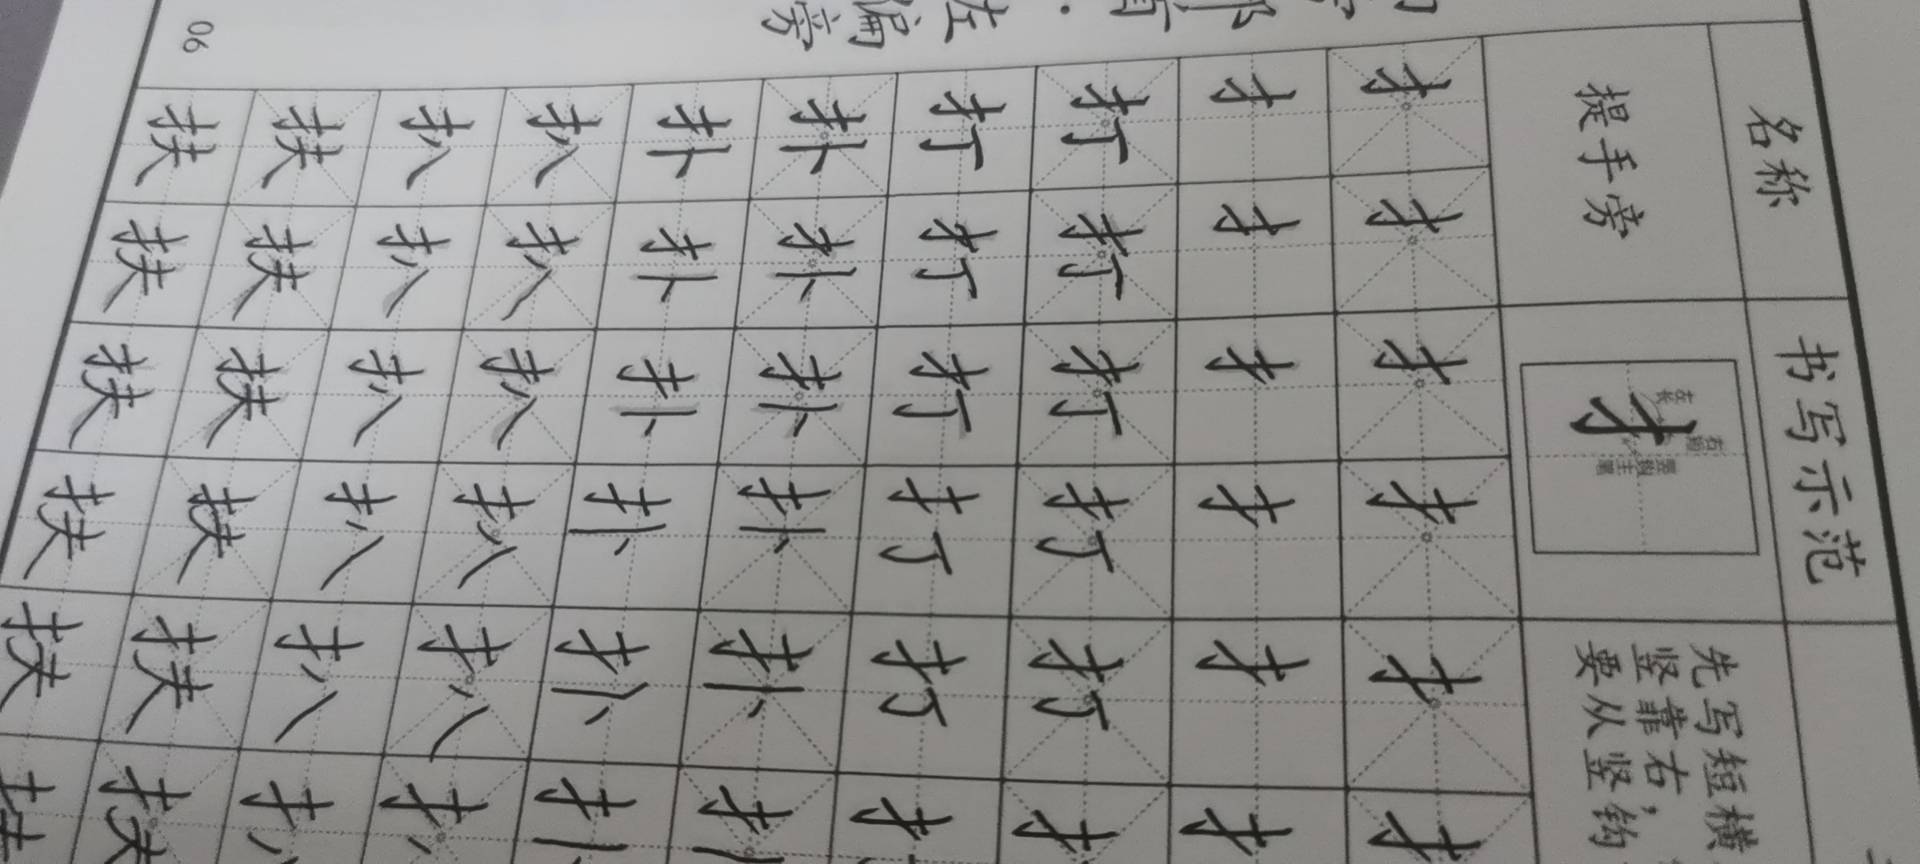 名称 书写示范
提手旁 扌 先写短横
竖靠右,钩
要从竖
扌 扌 扌 扌 扌 扌
扌 扌 扌 扌 扌 扌
打 打 打 打 打 扌
打 打 打 打 打 扌
扑 扑 扑 扑 扑 扑
扑 扑 扑 扑 扑 扑
扒 扒 扒 扒 扒 扒
扒 扒 扒 扒 扒 扒
扶 扶 扶 扶 扶 扶
扶 扶 扶 扶 扶 扶
左偏旁
06